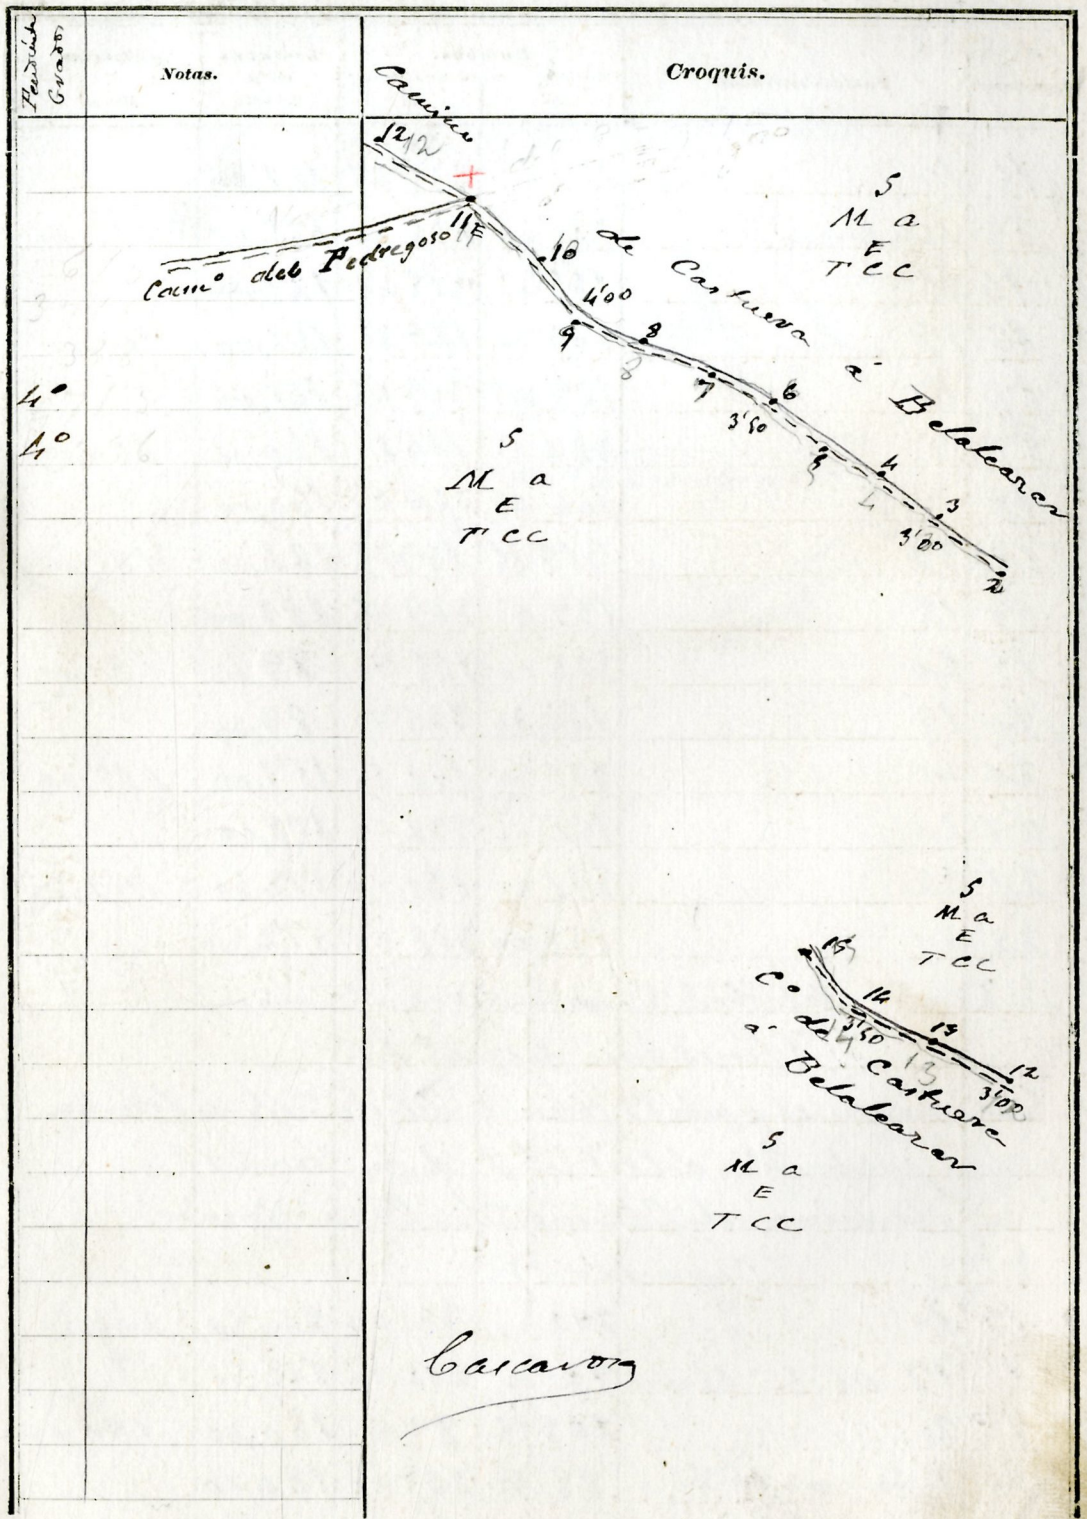 Pendiente
Grados
Notas.
Croquis.
Camino
12
11 E
Camº del Pedregoso
10
de Castuera á Belalcazar
4'00
9
8
7
6
3'50
5
4
3
3'00
2
4º
4º
S
M a
E
T CC
S
M a
E
T CC
S
M a
E
T CC
15
14
3'50
13
12
3'00
Cº de Castuera
á Belalcazar
S
M a
E
T CC